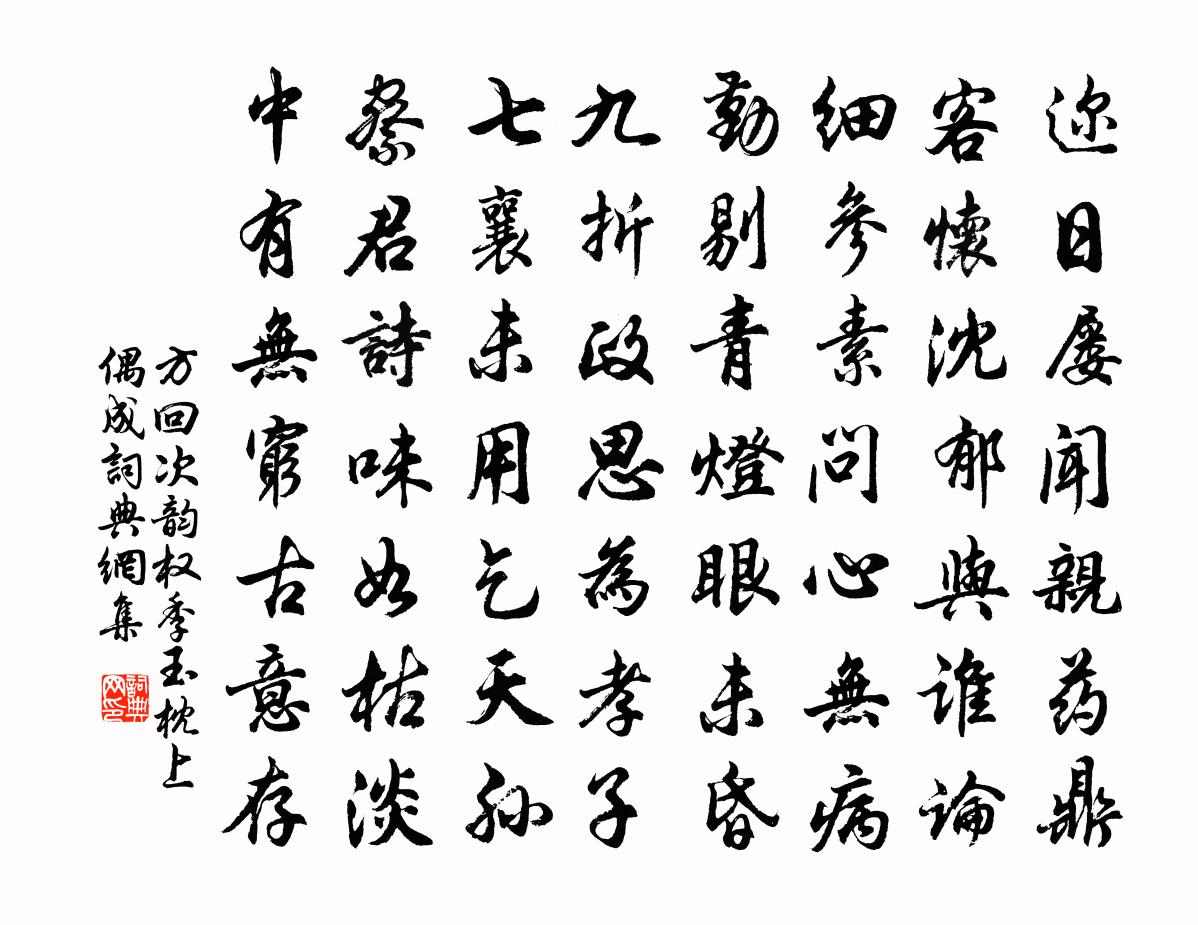 迩日屡闻親药鼎
客懷沈郁與谁論
細參素问心無病
勤剔青燈眼未昏
九折政思為孝子
七襄未用乞天孫
君詩味如枯淡
中有無窮古意存
方回次韵权季玉枕上
偶成詞典網集
詞典网印